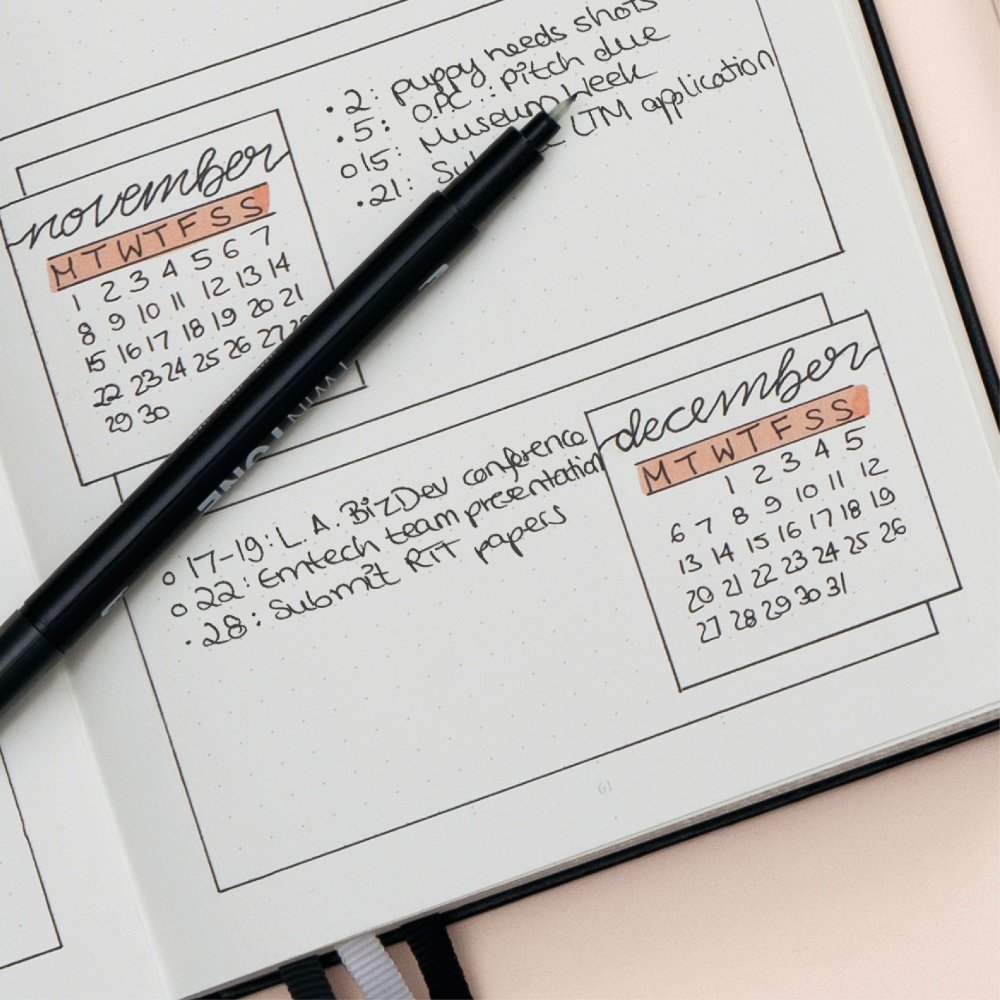 november
M T W T F S S
1 2 3 4 5 6 7
8 9 10 11 12 13 14
15 16 17 18 19 20 21
22 23 24 25 26 27 28
29 30
· 2: puppy needs shots
· 5: O.P.C.: pitch due
o 15: Museum Week
· 21: LTM application
TWINTONE
december
M T W T F S S
1 2 3 4 5
6 7 8 9 10 11 12
13 14 15 16 17 18 19
20 21 22 23 24 25 26
27 28 29 30 31
o 17-19: L.A. BizDev conference
o 22: Emtech team presentation
· 28: Submit RIT papers
61